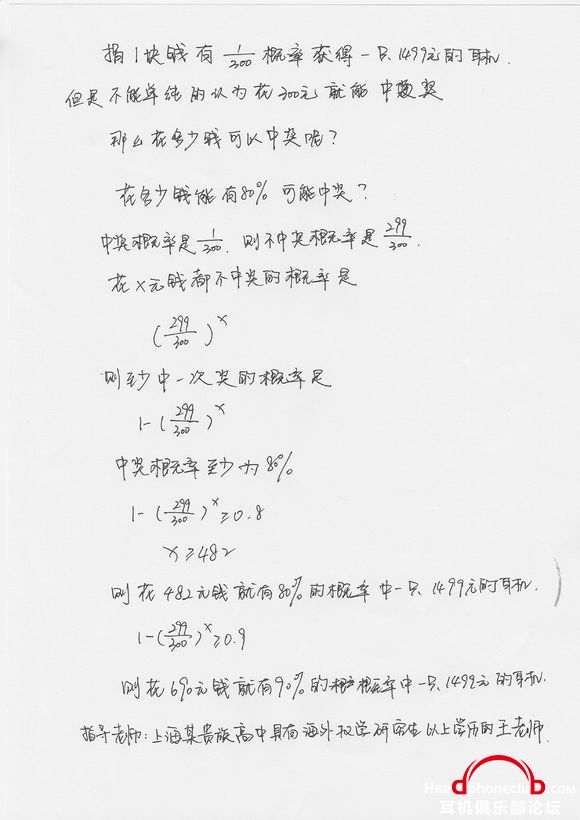 捐1块钱有 1/300 概率获得一只1499元的耳机.
但是不能单纯的认为花300元就能中奖
那么花多少钱可以中奖呢?
花多少钱能有80%可能中奖?
中奖概率是 1/300, 则不中奖概率是 299/300.
花x元钱都不中奖的概率是
(299/300)^x
则至少中一次奖的概率是
1-(299/300)^x
中奖概率至少为80%
1-(299/300)^x ≥0.8
x≥482
则花482元钱就有80%的概率中一只1499元的耳机.
1-(299/300)^x ≥0.9
则花690元钱就有90%的概率中一只1499元的耳机.
指导老师:上海某贵族高中具有海外权学研究生以上学历的王老师.
Headphoneclub.com
耳机俱乐部论坛